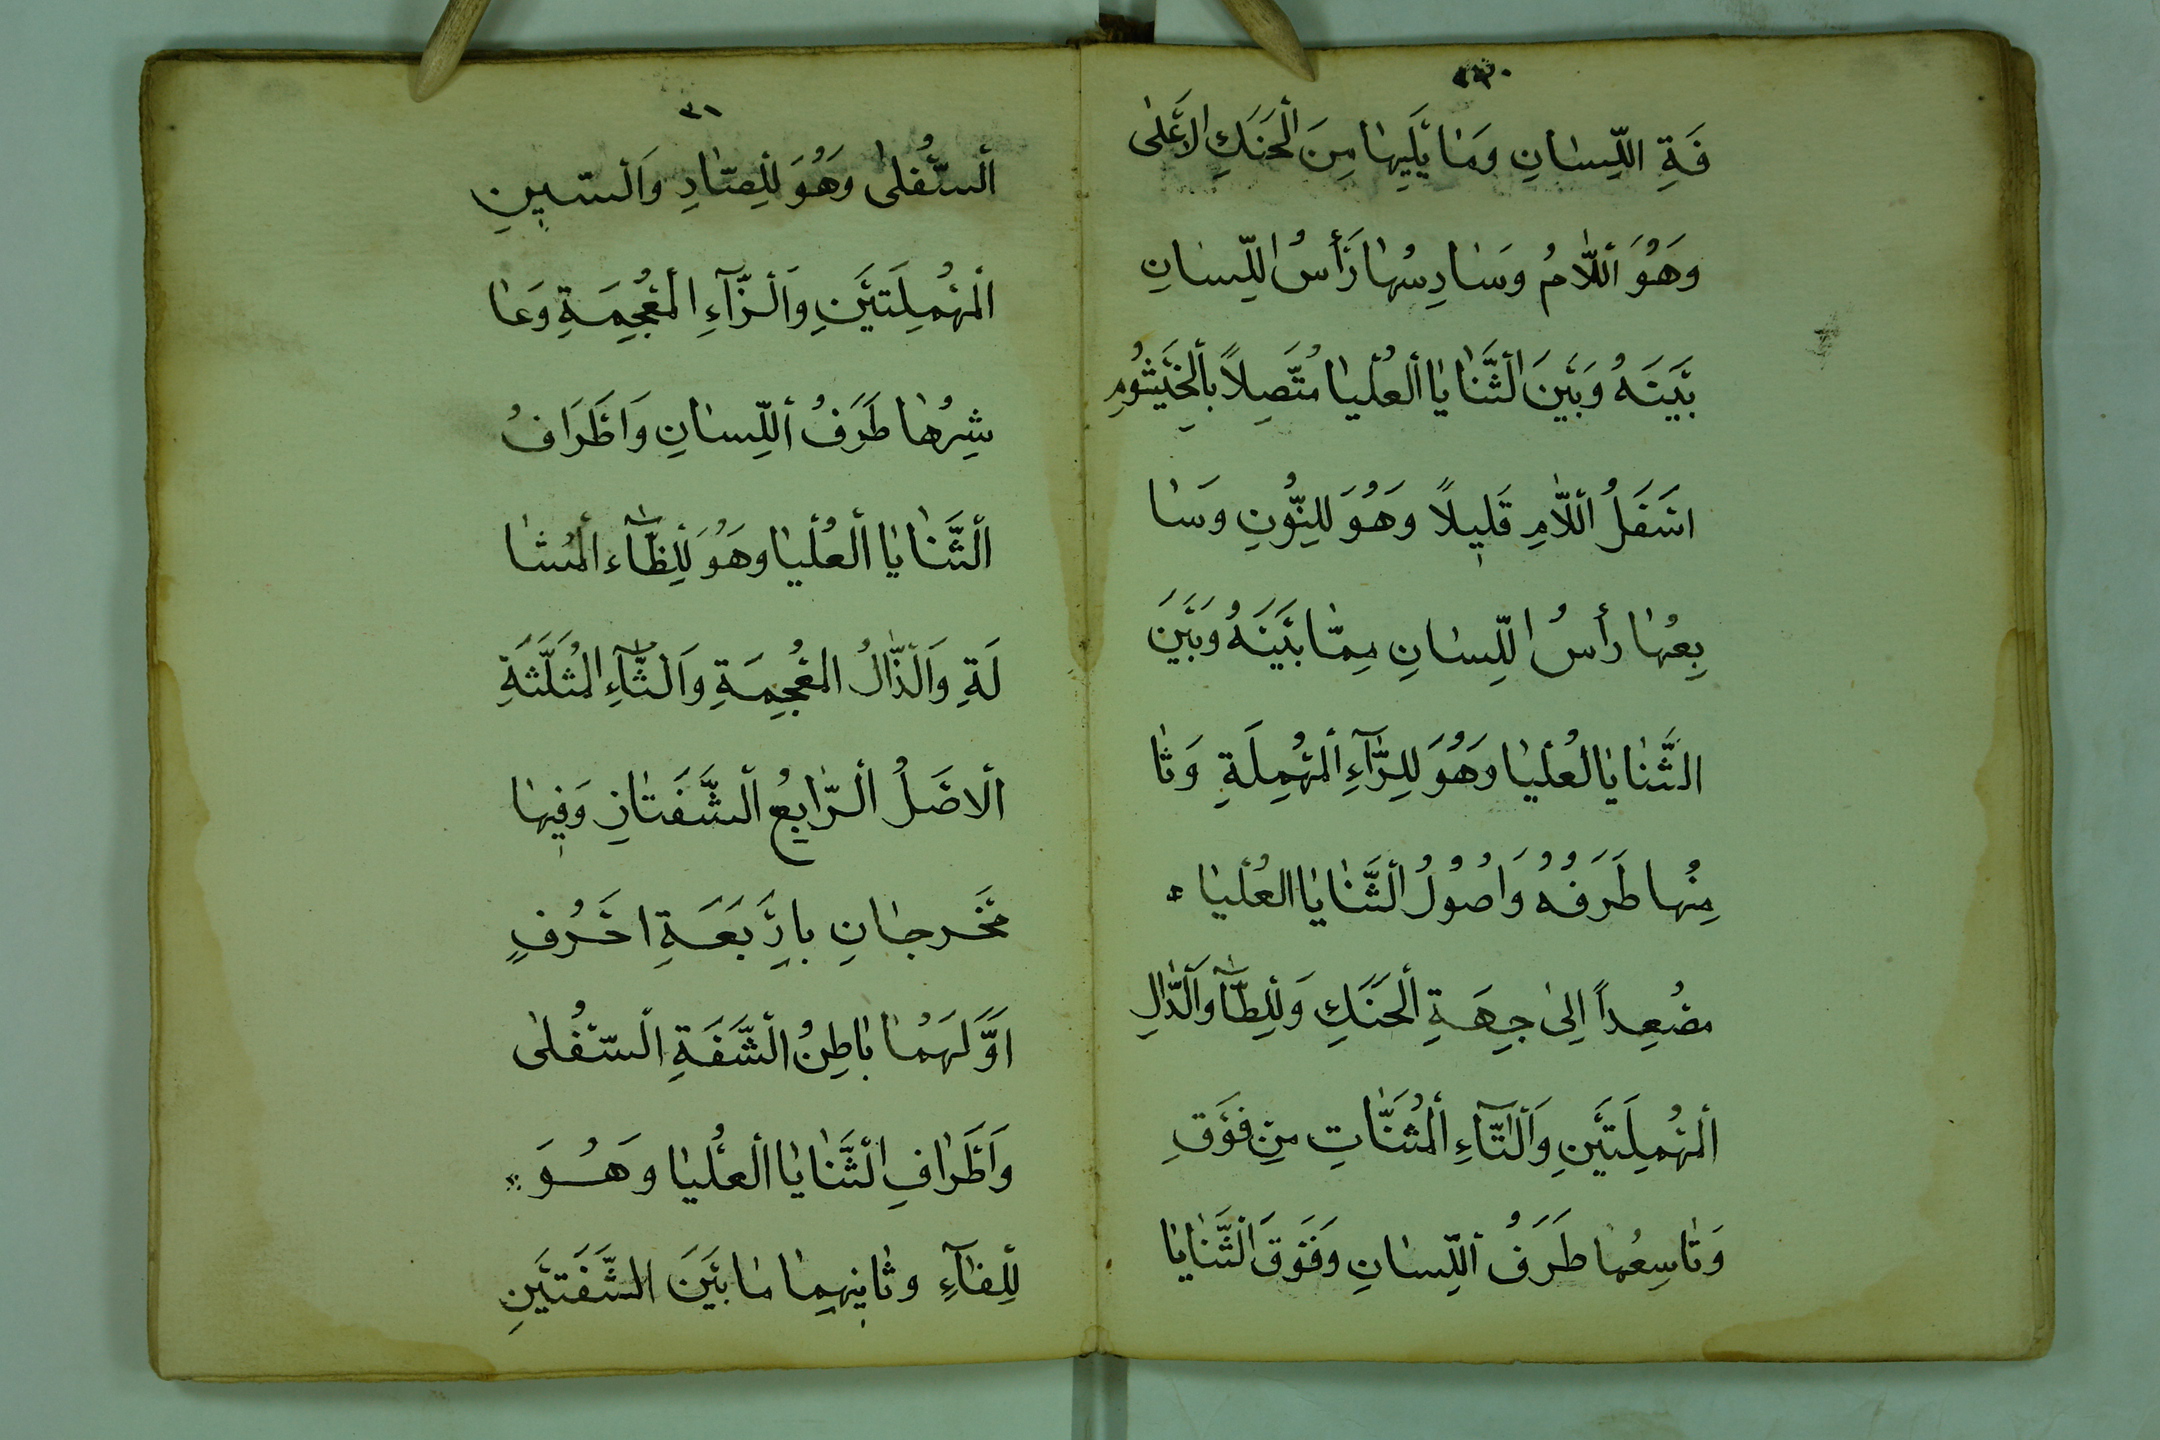 فَةِ اللِّسٰانِ وَمٰا يَلِيهٰا مِنَ الْحَنَكِ الاَعْلٰى
وَهُوَ اللّٰامُ وَسٰادِسُهٰا رَأْسُ اللِّسٰانِ
بَيْنَهُ وَبَيْنَ الثَّنٰايٰا الْعُلْيٰا مُتَّصِلاً بِالْخَيْشُومِ
اسَفَلُ اللّٰامِ قَلِيلاً وَهُوَ لِلنُّونِ وَسٰا
بِعُهٰا رأْسُ اللِّسٰانِ مِمّٰا بَيْنَهُ وَبَيْنَ
الثَّنٰايٰا الْعُلْيٰا وَهُوَ لِلرّٰآءِ الْمُهْمِلَةِ وَثٰا
مِنُهٰا طَرَفُهُ وَاصُوُلُ الثَّنٰايٰا الْعُلْيٰا
مصُعِداً اِلىٰ جِهَةِ الْحَنَكِ وَلِلطّٰآ وَالدّٰالِ
الْمُهْمِلَتَيْنِ وَالتّٰآءِ الْمُثَنّٰاتِ مِنْ فَوْقِ
وَتٰاسِعُهٰا طَرَفُ اللِّسٰانِ وَفَوْقَ الثَّنٰايٰا
٣١
السُّفْلىٰ وَهُوَ لِلصّٰادِ وَالسّبِينِ
الْمُهْمِلَتَيْنِ وَالزّٰآءِ الْمُعْجِمَةِ وَعٰا
شِرُهٰا طَرَفُ اللِّسٰانِ وَاَطْرَافُ
الثَّنٰايٰا الْعُلْيٰا وَهُوَ لِلظّٰآءِ الْمُشٰا
لَةِ وَالذّٰالُ الْمُعْجِمَةِ وَالثّٰآءِ الْمُثَلَّثَةِ
الاَصْلُ الرّٰابِعُ الشَّفَتٰانِ وَفِيهٰا
مَخْرجٰانِ بِارْبَعَةِ احْرُفٍ
اَوَّلَهُمٰا بٰاطِنُ الشَّفَةِ السُّفْلىٰ
وَاَطْرٰافِ الثَّنٰايٰا الْعُلْيٰا وَهُوَ
لِلْفٰآءِ وثٰانِيهِمٰا مٰا بَيْنَ الشَّفَتَيْنِ